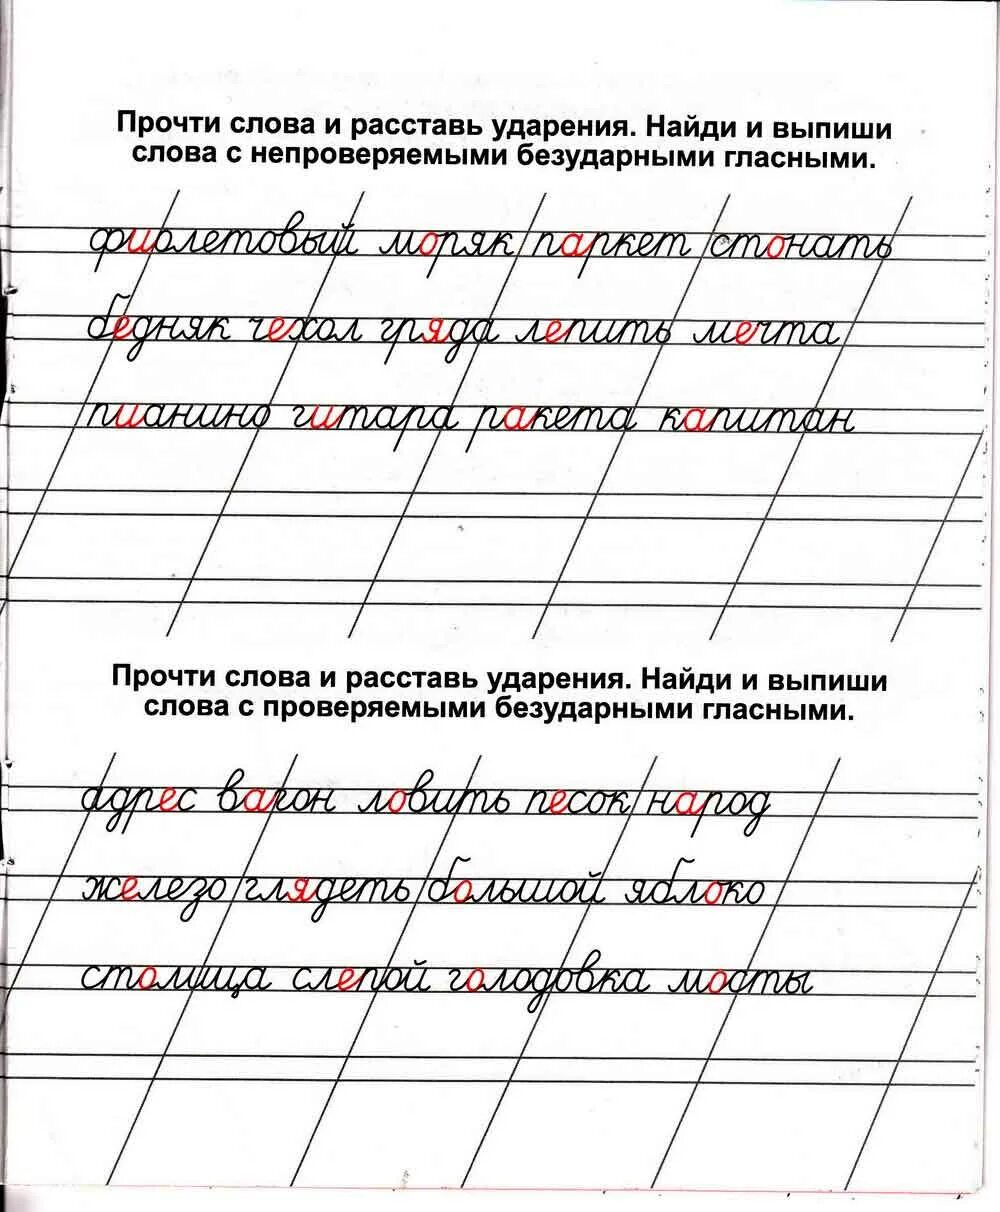 Прочти слова и расставь ударения. Найди и выпиши
слова с непроверяемыми безударными гласными.
фиолетовый моряк паркет стонать
бедняк чехол гряда лепить мечта
пианино гитара ракета капитан
Прочти слова и расставь ударения. Найди и выпиши
слова с проверяемыми безударными гласными.
адрес вагон ловить песок народ
железо глядеть большой яблоко
столица слепой голодовка мосты